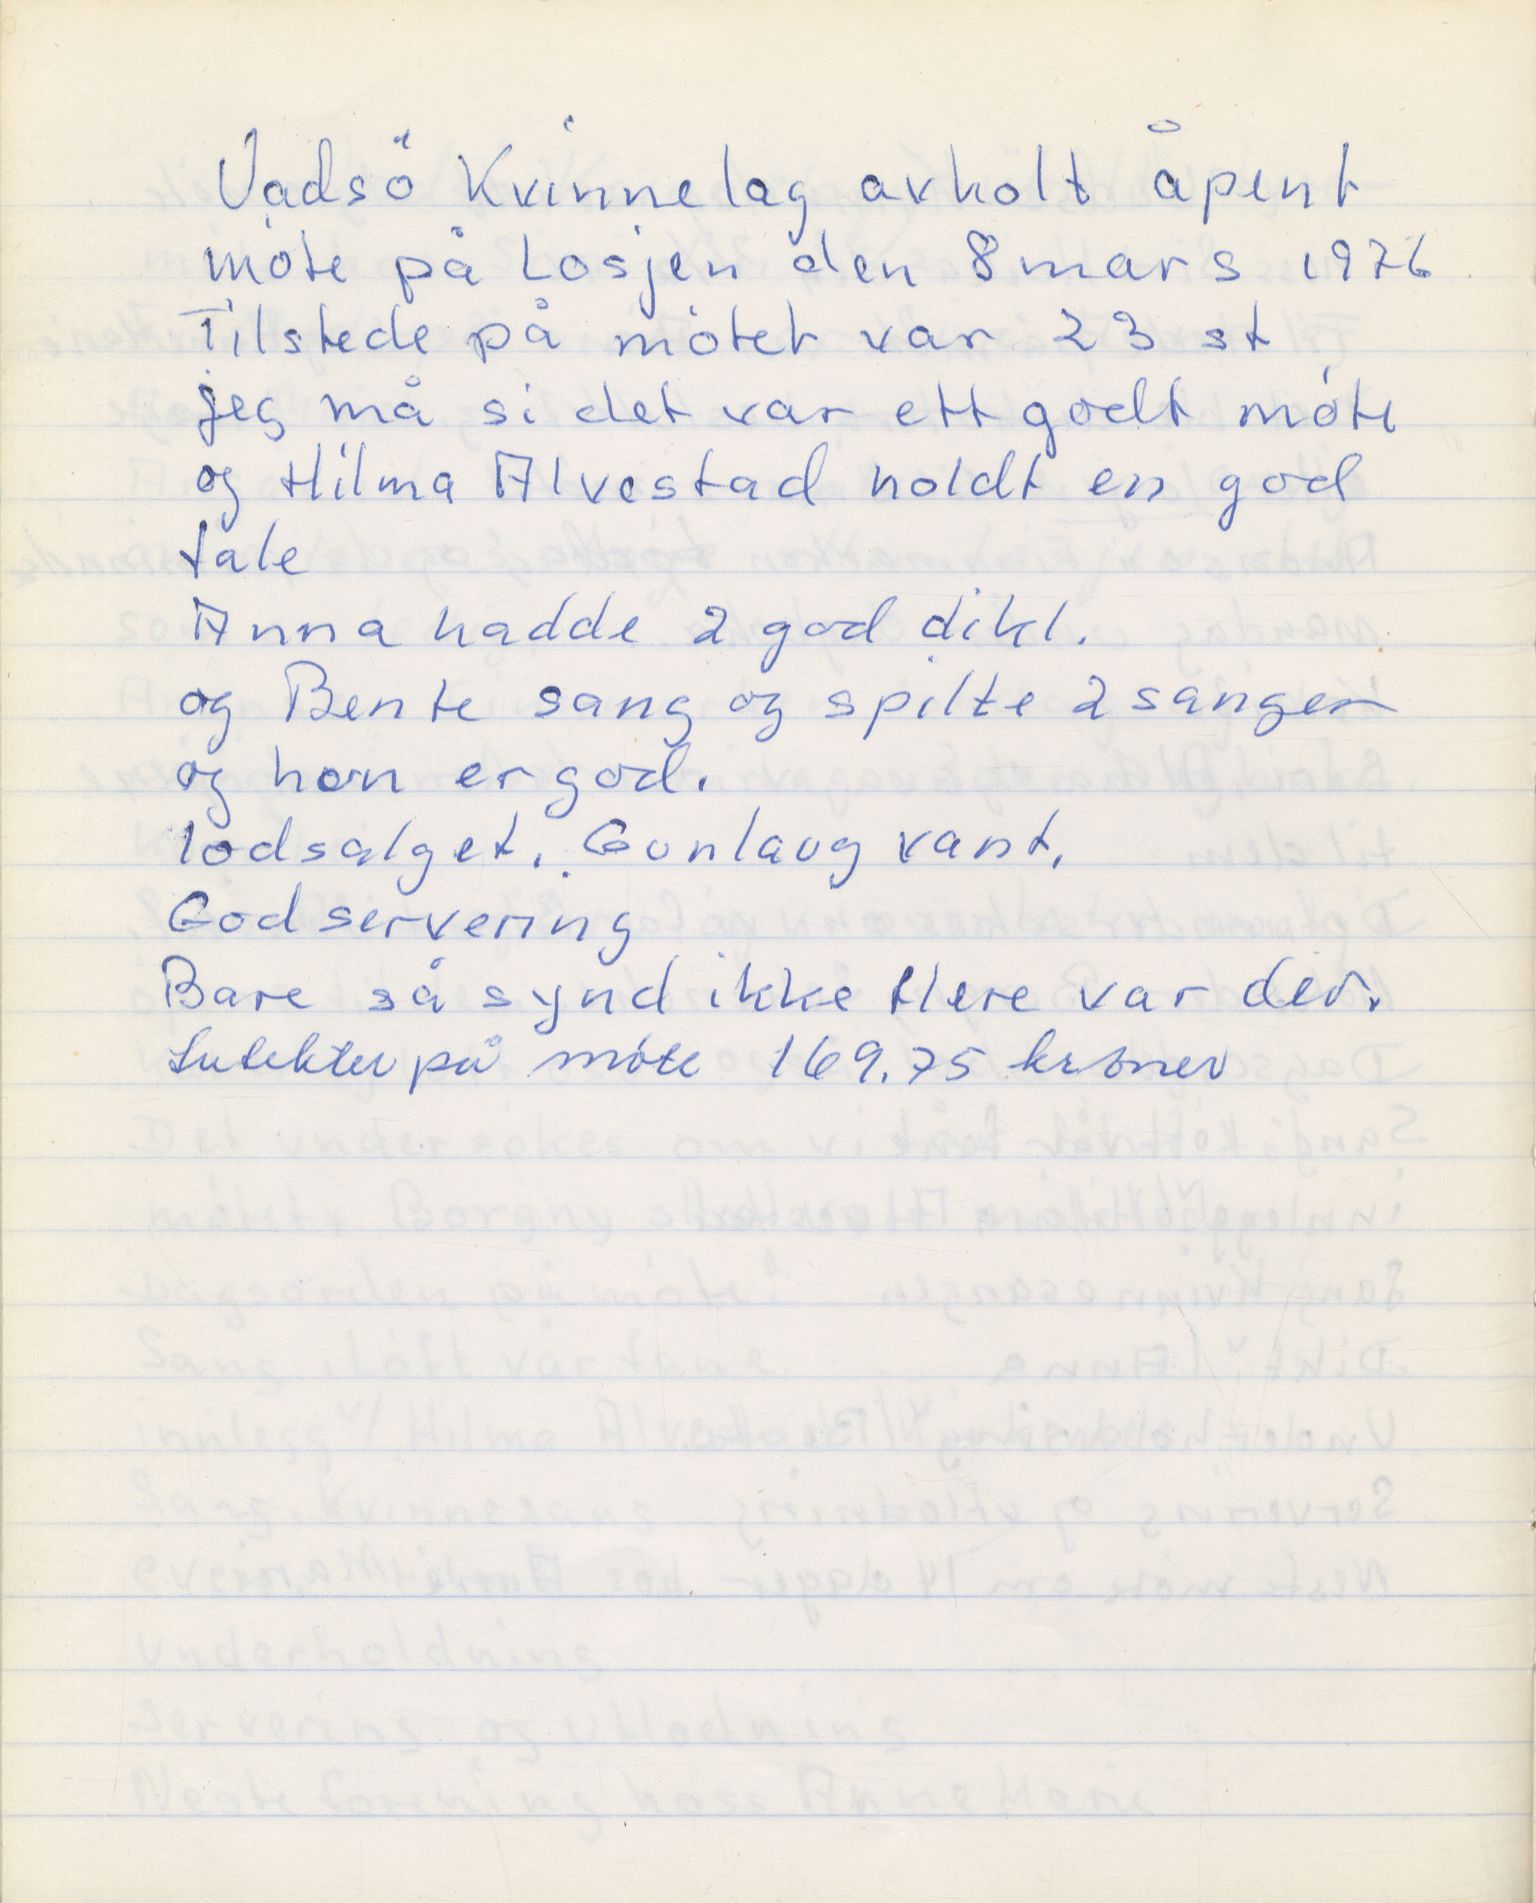 Vadsö Kvinnelag avholt åpent
móte på Losjen den 8 mars 1976
Tilstede på mótet var 23 st
jeg må si det var ett godt móte
og Hilma Alvestad holdt en god
tale
Anna hadde 2 god dikt.
og Bente sang og spilte 2 sanger
og hon er god.
lodsalget. Gunlaug vant.
God servering
Bare så synd ikke flere var der.
på móte 169.75 kroner